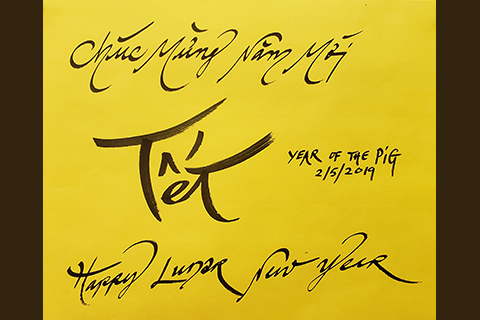 Chúc Mừng Năm Mới
Tết
YEAR OF THE PIG
2/5/2019
Happy Lunar New Year